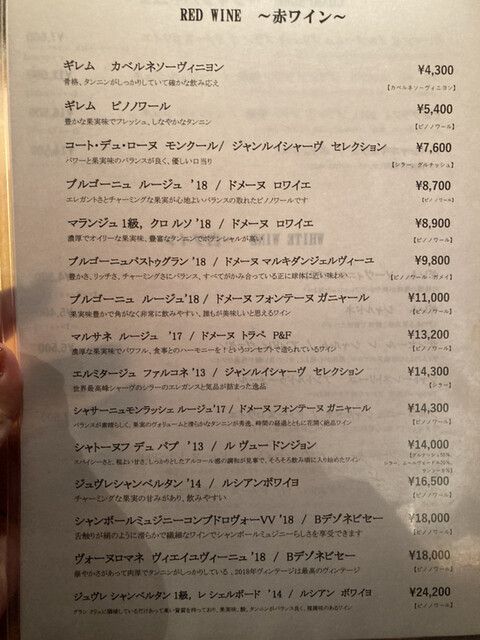 RED WINE ～赤ワイン～
ギレム カベルネソーヴィニヨン ¥4,300
骨格、タンニンがしっかりしていて確かな飲み応え 【カベルネソーヴィニヨン】
ギレム ピノノワール ¥5,400
豊かな果実味でフレッシュ、しなやかなタンニン 【ピノノワール】
コート・デュ・ローヌ モンクール/ ジャンルイシャーヴ セレクション ¥7,600
パワーと果実味のバランスが良く、優しい口当り 【シラー、グルナッシュ】
ブルゴーニュ ルージュ '18 / ドメーヌ ロワイエ ¥8,700
エレガントさとチャーミングな果実が心地よいバランスの取れたピノノワールです 【ピノノワール】
マランジュ 1級, クロ ルソ '18 / ドメーヌ ロワイエ ¥8,900
濃厚でオイリーな果実味、豊富なタンニンでポテンシャルが高い 【ピノノワール】
ブルゴーニュパストゥグラン '18 / ドメーヌ マルキダンジェルヴィーユ ¥9,800
豊かさ、リッチさ、チャーミングさにバランス、すべてがかみ合っている正に球体に近い味わい 【ピノノワール・ガメイ】
ブルゴーニュ ルージュ'18 / ドメーヌ フォンテーヌ ガニャール ¥11,000
果実味豊かで角がなく非常に飲みやすい、誰もが美味しいと思えるワイン 【ピノノワール】
マルサネ ルージュ '17 / ドメーヌ トラペ P&F ¥13,200
濃厚な果実味でパワフル、食事とのハーモニーを！というコンセプトで造られているワイン 【ピノノワール】
エルミタージュ ファルコネ '13 / ジャンルイシャーヴ セレクション ¥14,300
世界最高峰シャーヴのシラーのエレガンスと気品が詰まった逸品 【シラー】
シャサーニュモンラッシュ ルージュ'17 / ドメーヌ フォンテーヌ ガニャール ¥14,300
バランスが素晴らしく、果実のヴォリュームと滑らかなタンニンが秀逸、時間の経過とともに花開く絶品ワイン 【ピノノワール】
シャトーヌフ デュ パプ '13 / ル ヴュー ドンジョン ¥14,000
スパイシーさと、程よい甘さ、しっかりとしたアルコール感の調和が見事で、そろそろ飲み頃に入り始めたワイン
ジュヴレシャンベルタン '14 / ルシアンボワイヨ ¥16,500
チャーミングな果実の甘みがあり、飲みやすい 【ピノノワール】
シャンボールミュジニーコンブドロヴォーVV '18 / Bデゾネビセー ¥18,000
舌触りが絹のように滑らかで繊細なワインでシャンボールミュジニーらしさを享受できます 【ピノノワール】
ヴォーヌロマネ ヴィエイユヴィーニュ '18 / Bデゾネビセー ¥18,000
華やかさがあって肉厚でタンニンがしっかりしている、2018年ヴィンテージは最高のヴィンテージ 【ピノノワール】
ジュヴレ シャンベルタン 1級, レ シェルボード '14 / ルシアン ボワイヨ ¥24,200
【ピノノワール】